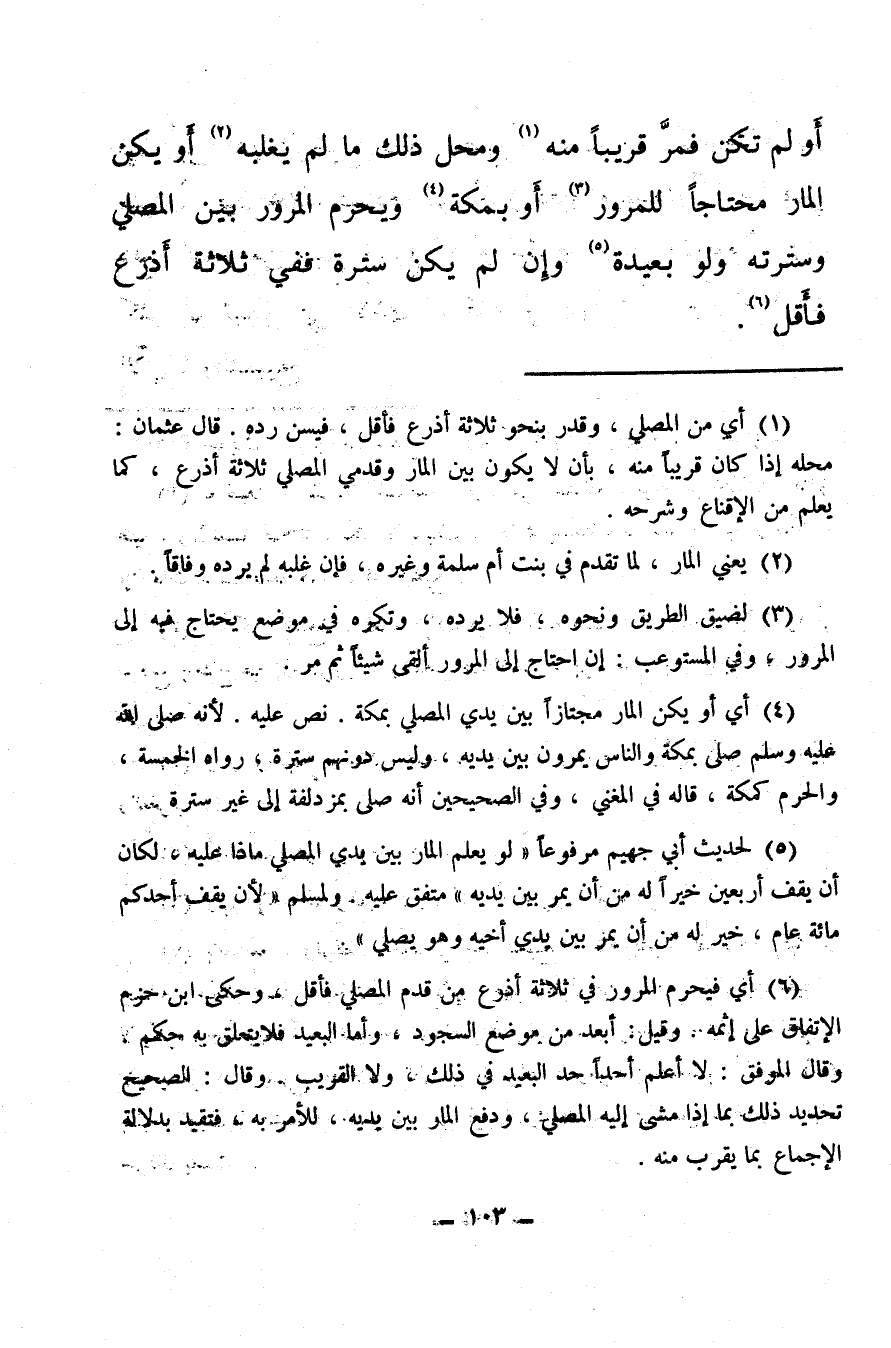 أَو لم تكن فمرَّ قريباً منه (١) ومحل ذلك ما لم يغلبه (٢) أَو يكن
المار محتاجاً للمرور (٣) أَو بمكة (٤) ويحرم المرور بين المصلي
وسترته ولو بعيدة (٥) وإن لم يكن سترة ففي ثلاثة أَذرع
فأَقل (٦) .
(١) أي من المصلي ، وقدر بنحو ثلاثة أذرع فأقل ، فيسن رده . قال عثمان :
محله إذا كان قريباً منه ، بأن لا يكون بين المار وقدمي المصلي ثلاثة أذرع ، كما
يعلم من الإقناع وشرحه .
(٢) يعني المار ، لما تقدم في بنت أم سلمة وغيره ، فإن غلبه لم يرده وفاقاً .
(٣) لضيق الطريق ونحوه ، فلا يرده ، وتكره في موضع يحتاج فيه إلى
المرور ، وفي المستوعب : إن احتاج إلى المرور ألقى شيئاً ثم مر .
(٤) أي أو يكن المار مجتازاً بين يدي المصلي بمكة . نص عليه . لأنه صلى الله
عليه وسلم صلى بمكة والناس يمرون بين يديه ، وليس دونهم سترة ، رواه الخمسة ،
والحرم كمكة ، قاله في المغني ، وفي الصحيحين أنه صلى بمزدلفة إلى غير سترة
(٥) لحديث أبي جهيم مرفوعاً « لو يعلم المار بين يدي المصلي ماذا عليه ، لكان
أن يقف أربعين خيراً له من أن يمر بين يديه » متفق عليه . ولمسلم « لأن يقف أحدكم
مائة عام ، خير له من أن يمر بين يدي أخيه وهو يصلي » .
(٦) أي فيحرم المرور في ثلاثة أذرع من قدم المصلي فأقل ، وحكى ابن حزم
الإتفاق على إثمه . وقيل : أبعد من موضع السجود ، وأما البعيد فلا يتعلق به حكم ،
وقال الموفق : لا أعلم أحداً حد البعيد في ذلك ، ولا القريب . وقال : الصحيح
تحديد ذلك بما إذا مشى إليه المصلي ، ودفع المار بين يديه ، للأمر به ، فتقيد بدلالة
الإجماع بما يقرب منه .
– ١٠٣ –